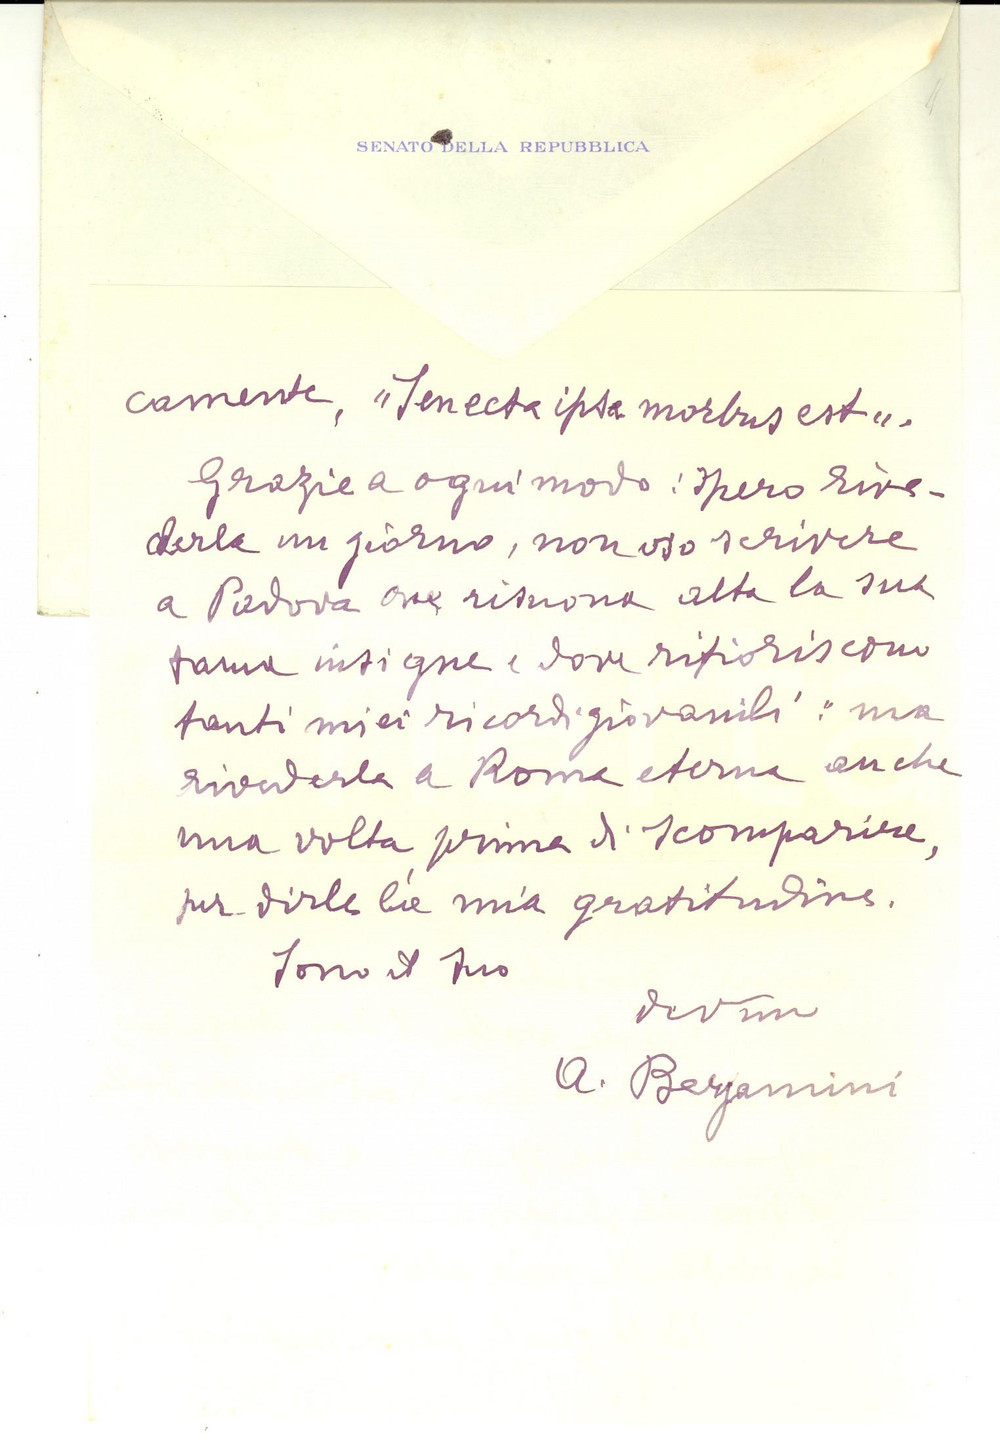 SENATO DELLA REPUBBLICA
camente, "Senecta ipsa morbus est".
Grazie a ogni modo: spero rive-
derla un giorno, non oso scrivere
a Padova ove risuona alta la sua
fama insigne e dove rifioriscono
tanti miei ricordi giovanili: ma
rivederla a Roma eterna anche
una volta, prima di scomparire,
per dirle la mia gratitudine.
Sono il suo
dev.mo
A. Bergamini